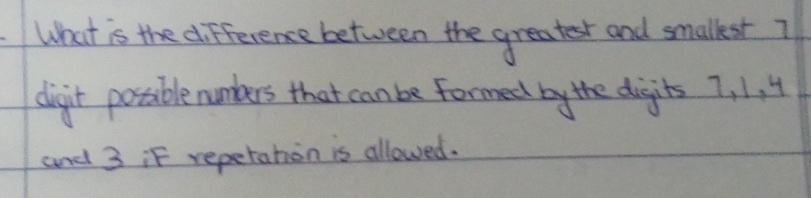 What is the difference between the greatest and smallest 7
digit possible numbers that can be formed by the digits 7, 1, 4
and 3 if repetation is allowed.